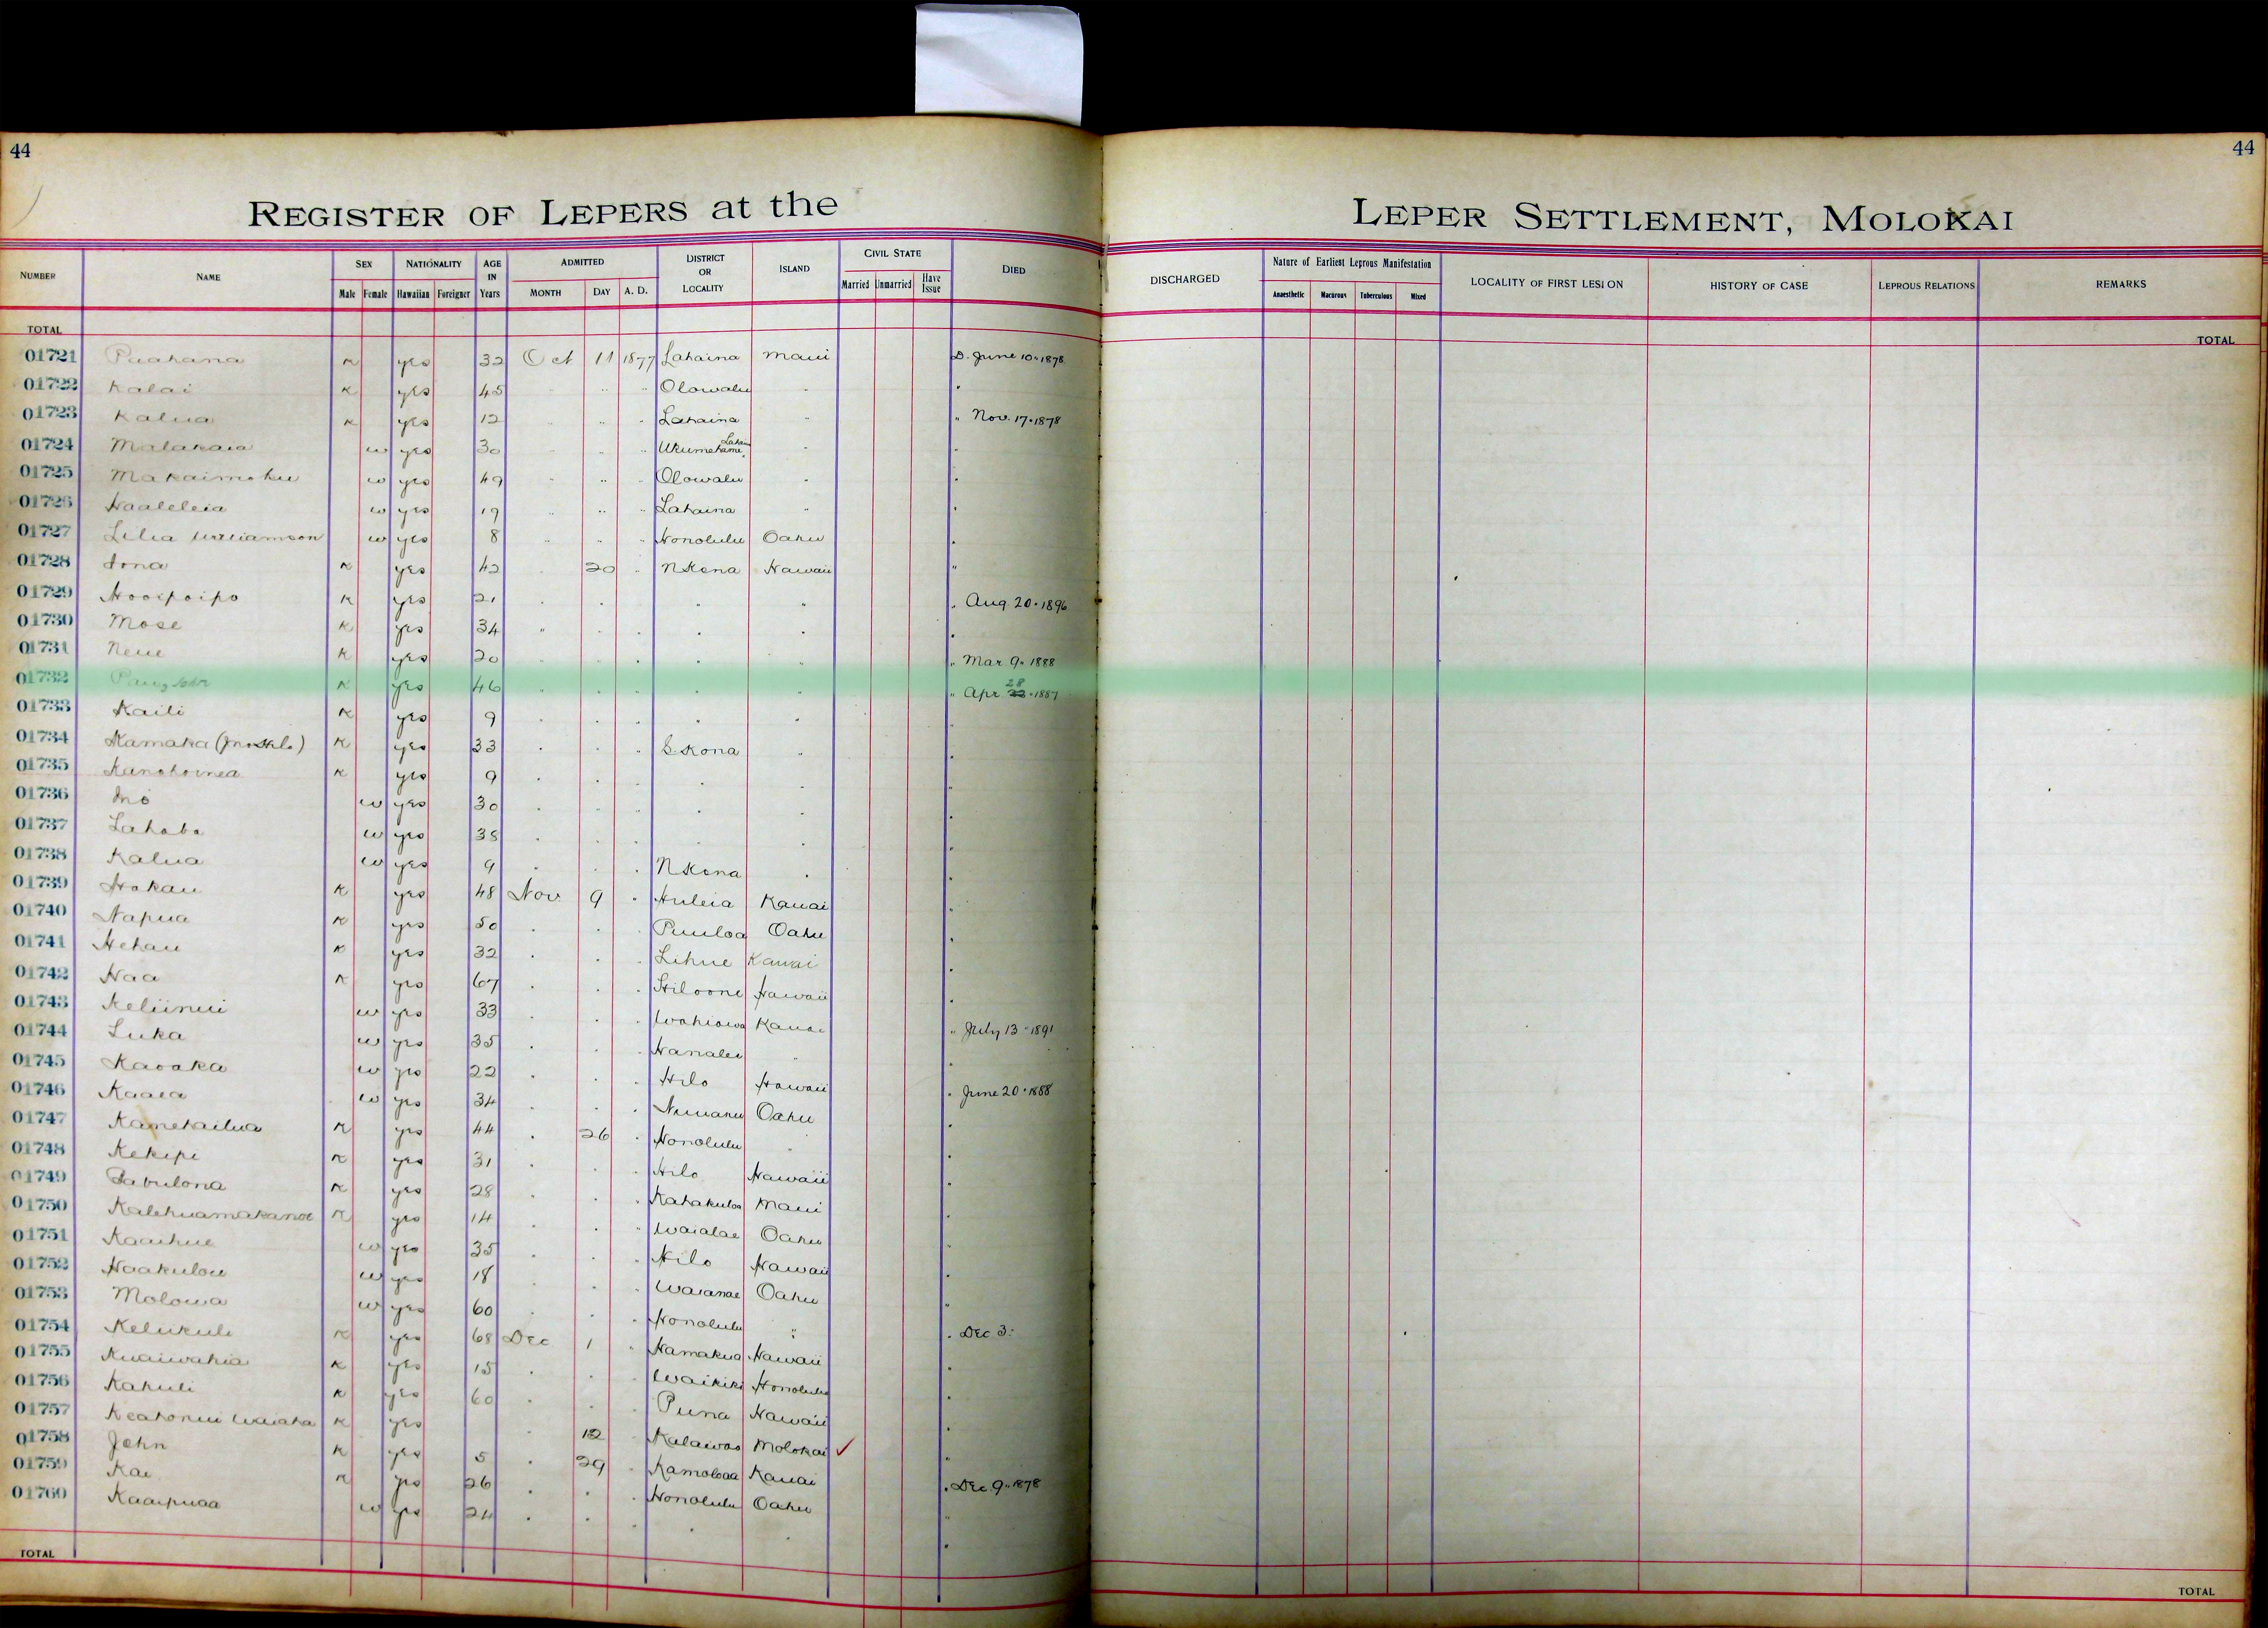 44
44
REGISTER OF LEPERS at the LEPER SETTLEMENT, MOLOKAI
NUMBER NAME SEX NATIONALITY AGE IN Years ADMITTED DISTRICT OR LOCALITY ISLAND CIVIL STATE DIED DISCHARGED Nature of Earliest Leprous Manifestation LOCALITY OF FIRST LESION HISTORY OF CASE LEPROUS RELATIONS REMARKS
Male Female Hawaiian Foreigner MONTH DAY A. D. Married Unmarried Have Issue Anaesthetic Macurous Tuberculous Mixed
TOTAL TOTAL
01721 Puahana K yes 32 Oct 11 1877 Lahaina Maui D. June 10 " 1878
01722 Kalai K yes 45 " " Olowalu " "
01723 Kalua K yes 12 " " " Lahaina " " Nov. 17 " 1878
01724 Malakaia w yes 30 " " " Ukumehame, " "
01725 Makaimoku w yes 49 " " " Olowalu " "
01726 Haaleleia w yes 19 " " " Lahaina " "
01727 Lilia Williamson w yes 8 " " " Honolulu Oahu "
01728 Iona K yes 42 " 20 " N Kona Hawaii "
01729 Hooipoipo K yes 21 " " " " " Aug. 20 " 1896
01730 Mose K yes 34 " " " " " "
01731 Neue K yes 20 " " " " " " Mar 9 " 1888
01732 K yes 46 " " " " " " Apr 28 " 1887
01733 Kaili K yes 9 " " " " " "
01734 Kamaka K yes 33 " " " S. Kona " "
01735 K yes 9 " " " " " "
01736 w yes 30 " " " " " "
01737 w yes 38 " " " " " "
01738 Kalua w yes 9 " " " N Kona " "
01739 Hokau K yes 48 Nov 9 " Huleia Kauai "
01740 Napua K yes 50 " " " Puuloa Oahu "
01741 Hehau K yes 32 " " " Lihue Kauai "
01742 Naa K yes 67 " " " Hiloone Hawaii "
01743 Keliinui w yes 33 " " " Wahiawa Kauai " July 13 " 1891
01744 Luka w yes 35 " " " Hanalei " "
01745 Kaoaka w yes 22 " " " Hilo Hawaii " June 20 " 1888
01746 Kaaea w yes 34 " " " Nuuanu Oahu "
01747 Kamekailua K yes 44 " 26 " Honolulu " "
01748 Kekipi K yes 31 " " " Hilo Hawaii "
01749 Pabulona K yes 28 " " " Kahakuloa Maui "
01750 Kalehuamakanoe K yes 14 " " " Waialae Oahu "
01751 Kaaihue w yes 35 " " " Hilo Hawaii "
01752 Haakulou w yes 18 " " " Waianae Oahu "
01753 Molowa w yes 60 " " " Honolulu " " Dec 3.
01754 K yes 68 Dec 1 " Hamakua Hawaii "
01755 Kuaiwahia K yes 15 " " Waikiki Honolulu "
01756 Kahuli K yes 60 " " Puna Hawaii "
01757 Keahonui Waiaha K yes " 12 Kalawao Molokai ✓ "
01758 John K yes 5 " 29 " Kamoloaa Kauai " Dec 9 " 1878
01759 Kai K yes 26 " " " Honolulu Oahu "
01760 Kaaipuaa w yes 24 " " " " " "
TOTAL TOTAL